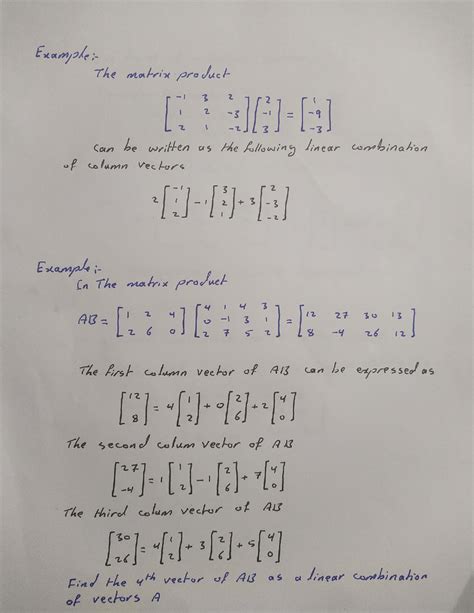 Example:-
The matrix product
[-1 3 2; 1 2 -3; 2 1 -2] [2; -1; 3] = [1; -9; -3]
can be written as the following linear combination
of column vectors
2 [-1; 1; 2] - 1 [3; 2; 1] + 3 [2; -3; -2]
Example:-
In The matrix product
AB = [1 2 4; 2 6 0] [4 1 4 3; 0 -1 3 1; 2 7 5 2] = [12 27 30 13; 8 -4 26 12]
The first column vector of AB can be expressed as
[12; 8] = 4 [1; 2] + 0 [2; 6] + 2 [4; 0]
The second colum vector of AB
[27; -4] = 1 [1; 2] - 1 [2; 6] + 7 [4; 0]
The third colum vector of AB
[30; 26] = 4 [1; 2] + 3 [2; 6] + 5 [4; 0]
Find the 4th vector of AB as a linear combination
of vectors A